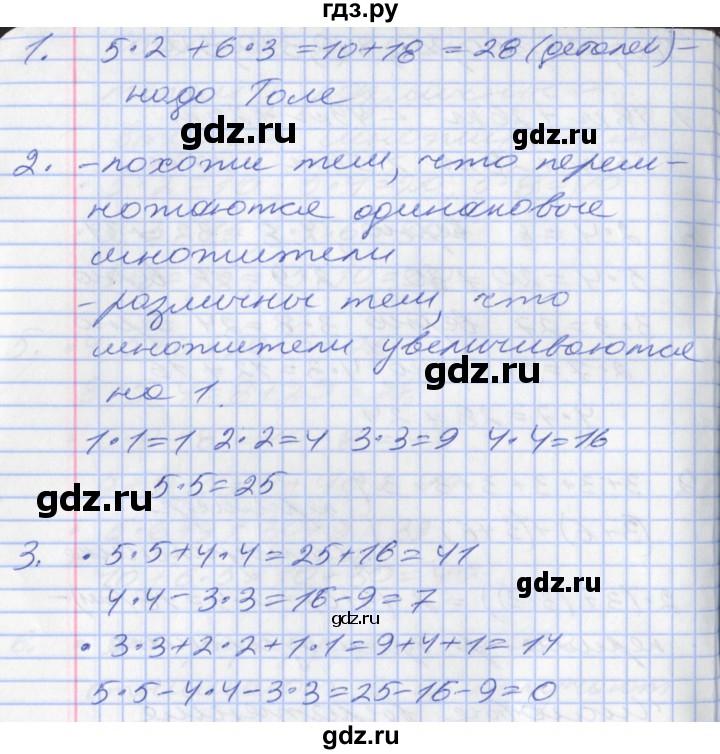 гдз.ру
1. 5·2+6·3=10+18=28 (деталей)-
надо Толе
gdz.ru gdz.ru
2. -похожи тем, что перем-
ножаются одинаковые
множители
-различны тем, что
множители увеличиваются
gdz.ru
на 1.
1·1=1 2·2=4 3·3=9 4·4=16
5·5=25
gdz.ru
3. • 5·5+4·4=25+16=41
gdz.ru
4·4-3·3=16-9=7
gdz.ru
• 3·3+2·2+1·1=9+4+1=14
5·5-4·4-3·3=25-16-9=0
gdz.ru gdz.ru